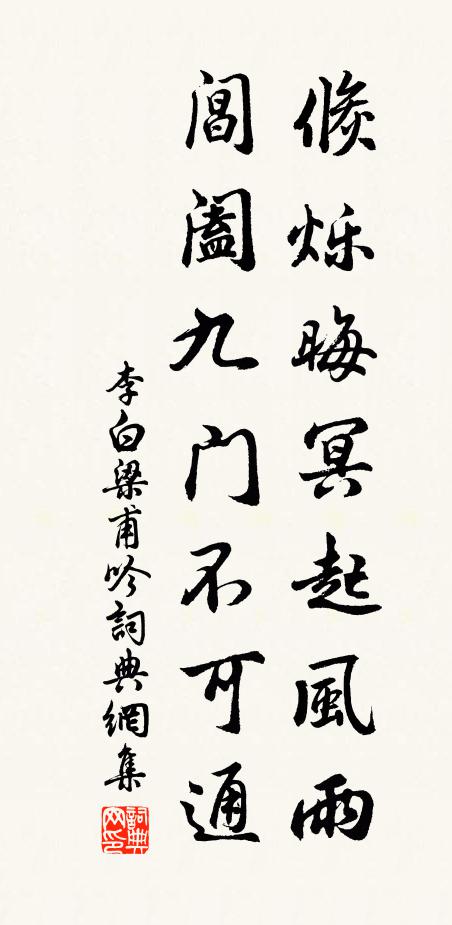 倐烁晦冥起風雨
阊阖九门不可通
李白梁甫吟詞典網集
詞典网印